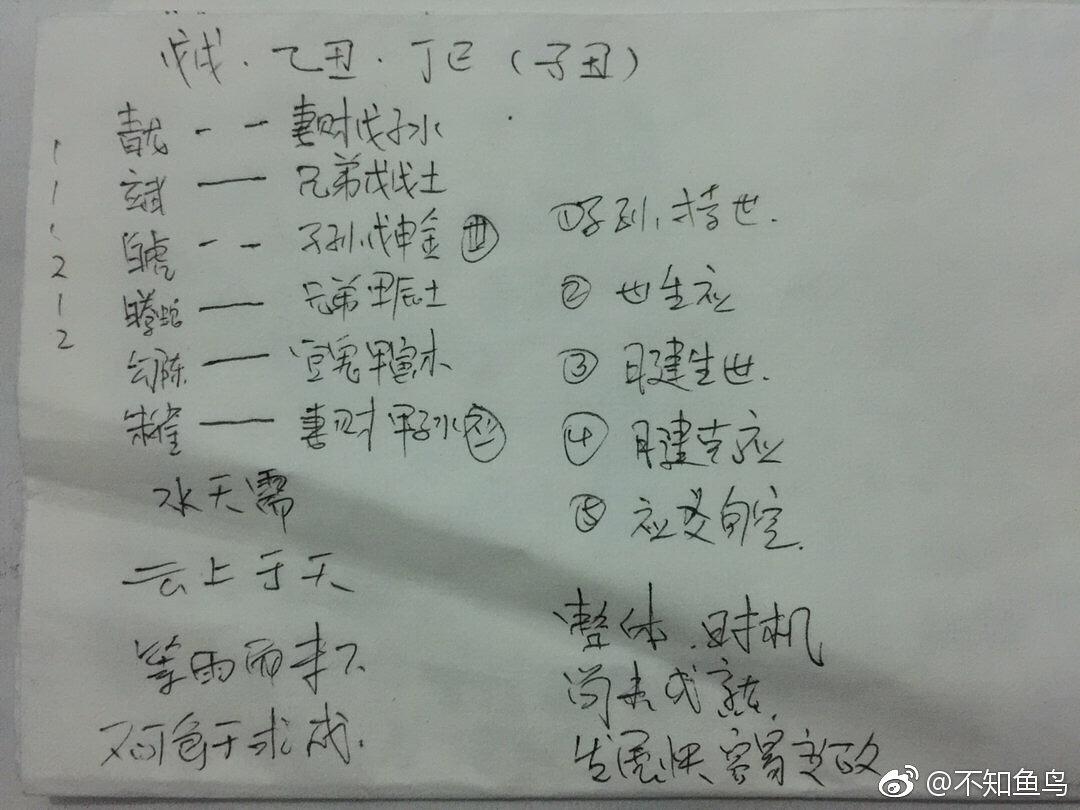 戊戌·乙丑·丁巳（子丑）
青龙 -- 妻财戊子水
玄武 — 兄弟戊戌土
白虎 -- 子孙戊申金 世
螣蛇 — 兄弟甲辰土
勾陈 — 官鬼甲寅木
朱雀 — 妻财甲子水 应
1
1
1
2
1
2
水天需
云上于天
等雨而未下
不可急于求成.
①子孙持世.
② 世生应
③ 月建生世.
④ 月建克应
⑤ 应爻旬空.
整体.时机
尚未成熟.
发展快容易变故
@不知鱼鸟